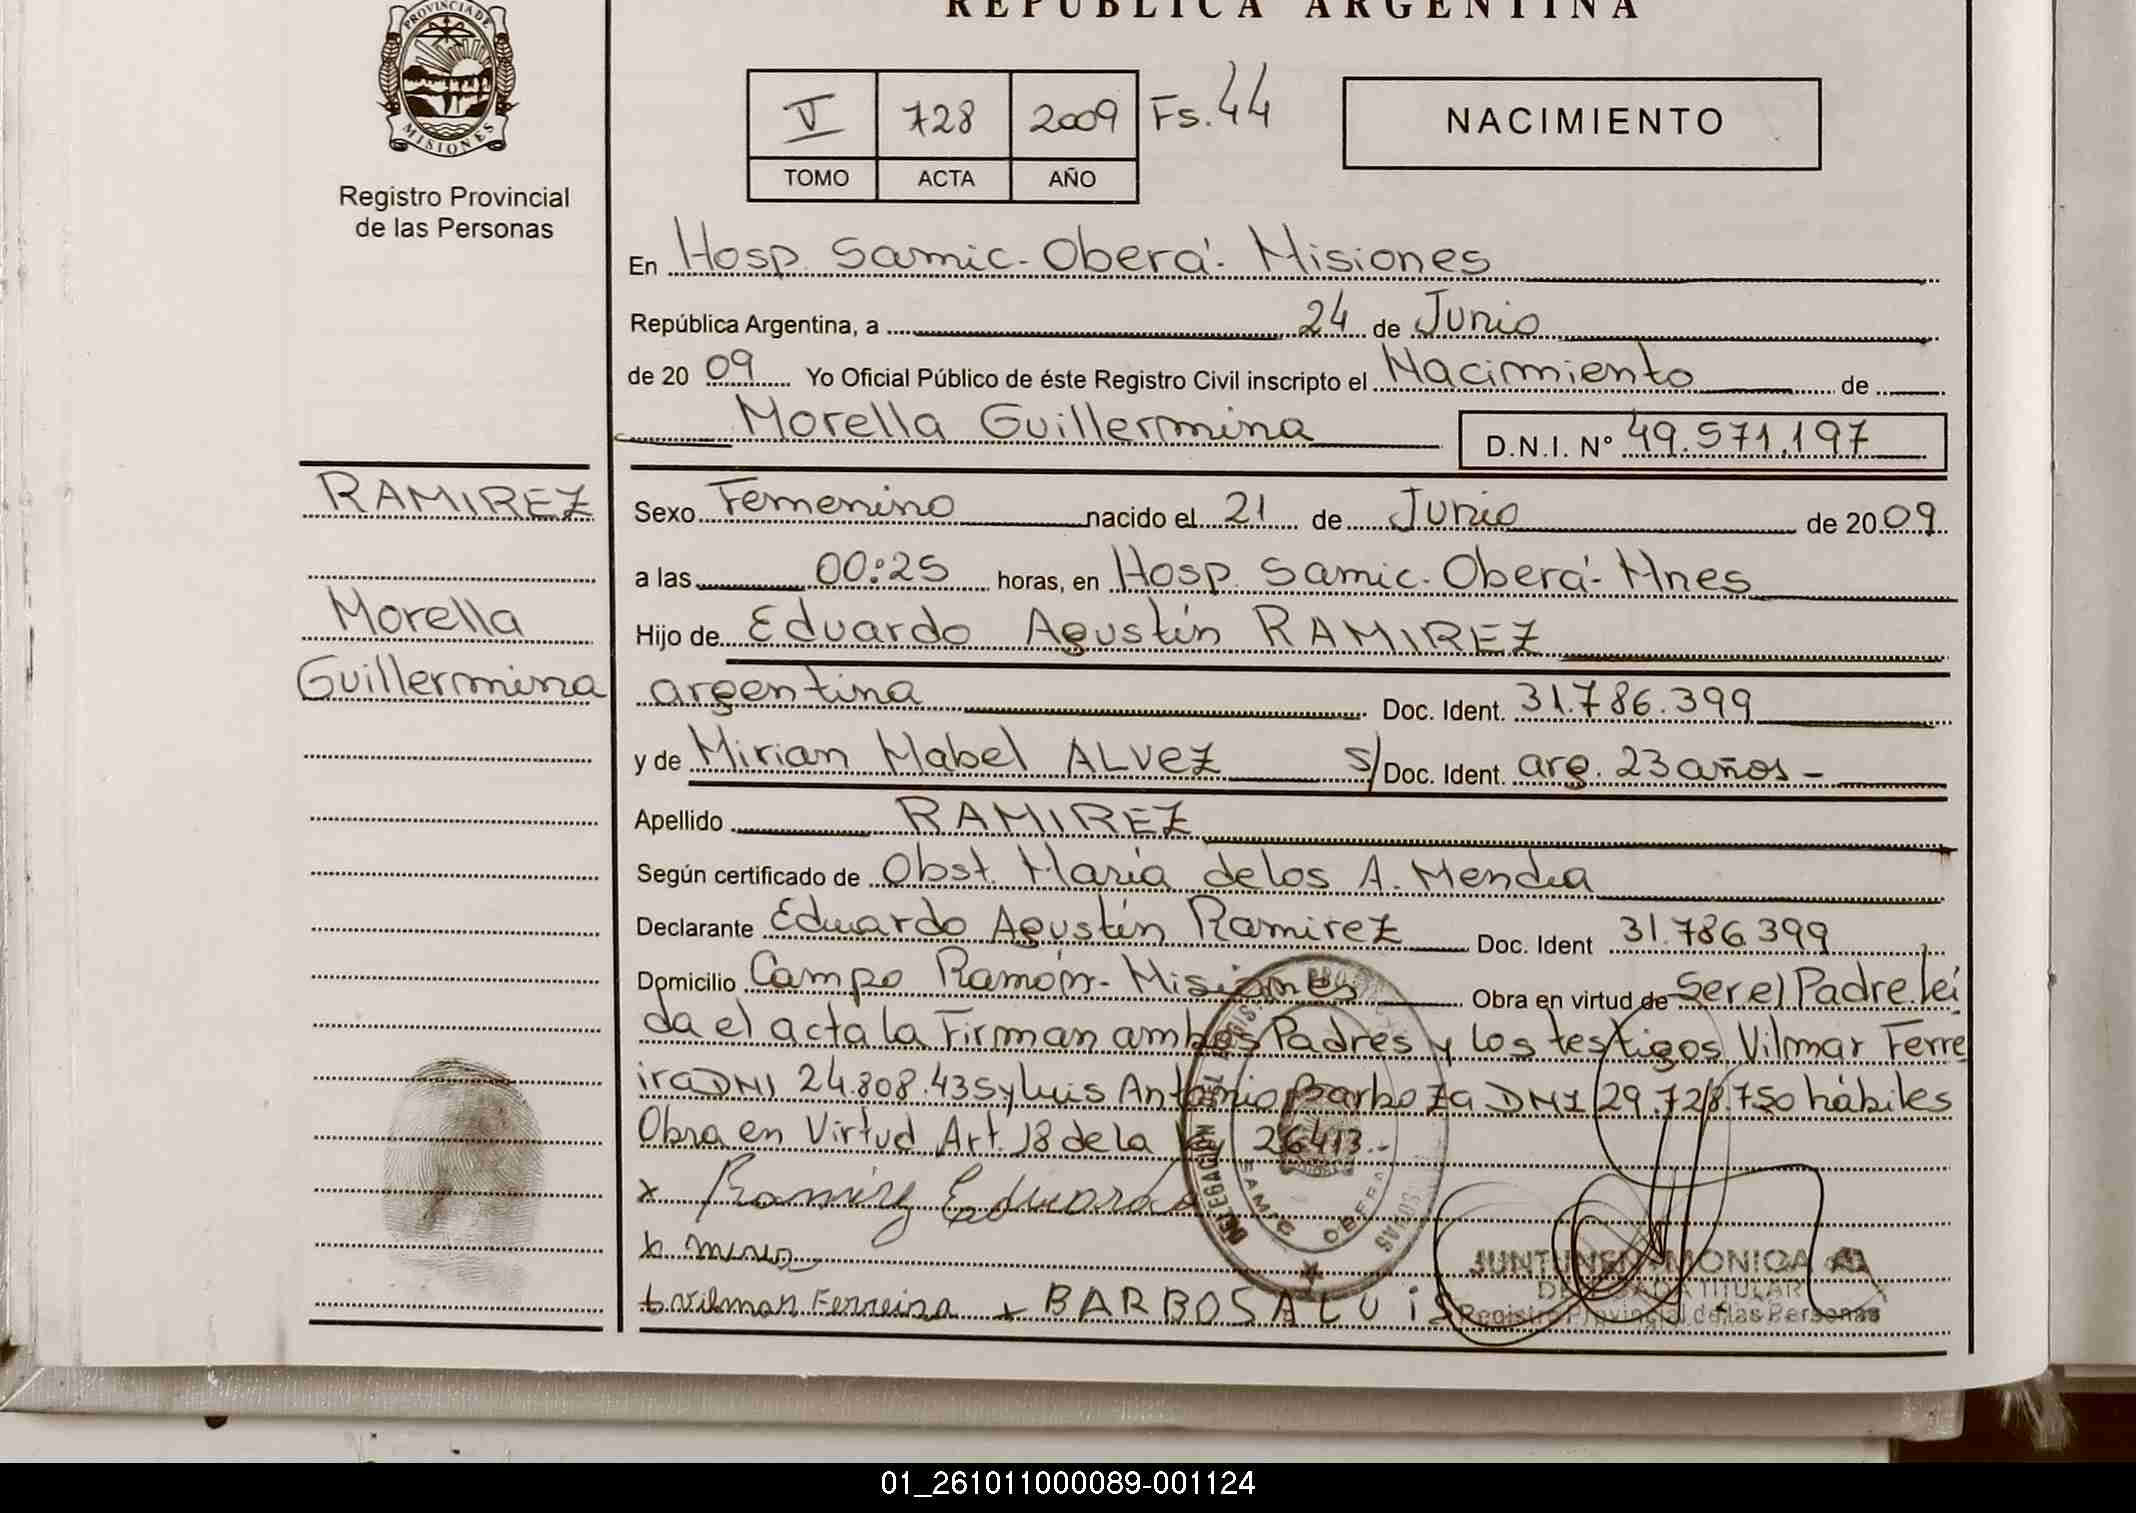 REPUBLICA ARGENTINA
PROVINCIA DE
MISIONES
Registro Provincial
de las Personas
V 728 2009 Fs. 44
TOMO ACTA AÑO
NACIMIENTO
En Hosp. Samic - Oberá - Misiones
República Argentina, a 24 de Junio
de 20 09 Yo Oficial Público de éste Registro Civil inscripto el Nacimiento de
Morella Guillermina D.N.I. N° 49.571.197
RAMIREZ
Morella
Guillermina
Sexo Femenino nacido el 21 de Junio de 20 09
a las 00:25 horas, en Hosp. Samic. Oberá - Mnes
Hijo de Eduardo Agustín RAMIREZ
argentina Doc. Ident. 31.786.399
y de Mirian Mabel ALVEZ s/ Doc. Ident. arg. 23 años -
Apellido RAMIREZ
Según certificado de Obst. María delos A. Mendia
Declarante Eduardo Agustín Ramirez Doc. Ident 31.786.399
Domicilio Campo Ramón - Misiones Obra en virtud de Ser el Padre. leí
da el acta la Firman ambos Padres y los testigos Vilmar Ferre
ira DNI 24.808.435 y Luis Antonio Barboza DNI 29.728.750 hábiles
Obra en Virtud Art. 18 de la Ley 26413.-
x Ramirez Eduardo
x
x Vilmar Ferreira x BARBOSA LUIS
DELEGACION
SAMIC OBERA
JUNTUNEN MONICA
DELEGADA TITULAR
Registro Provincial de las Personas
01_261011000089-001124